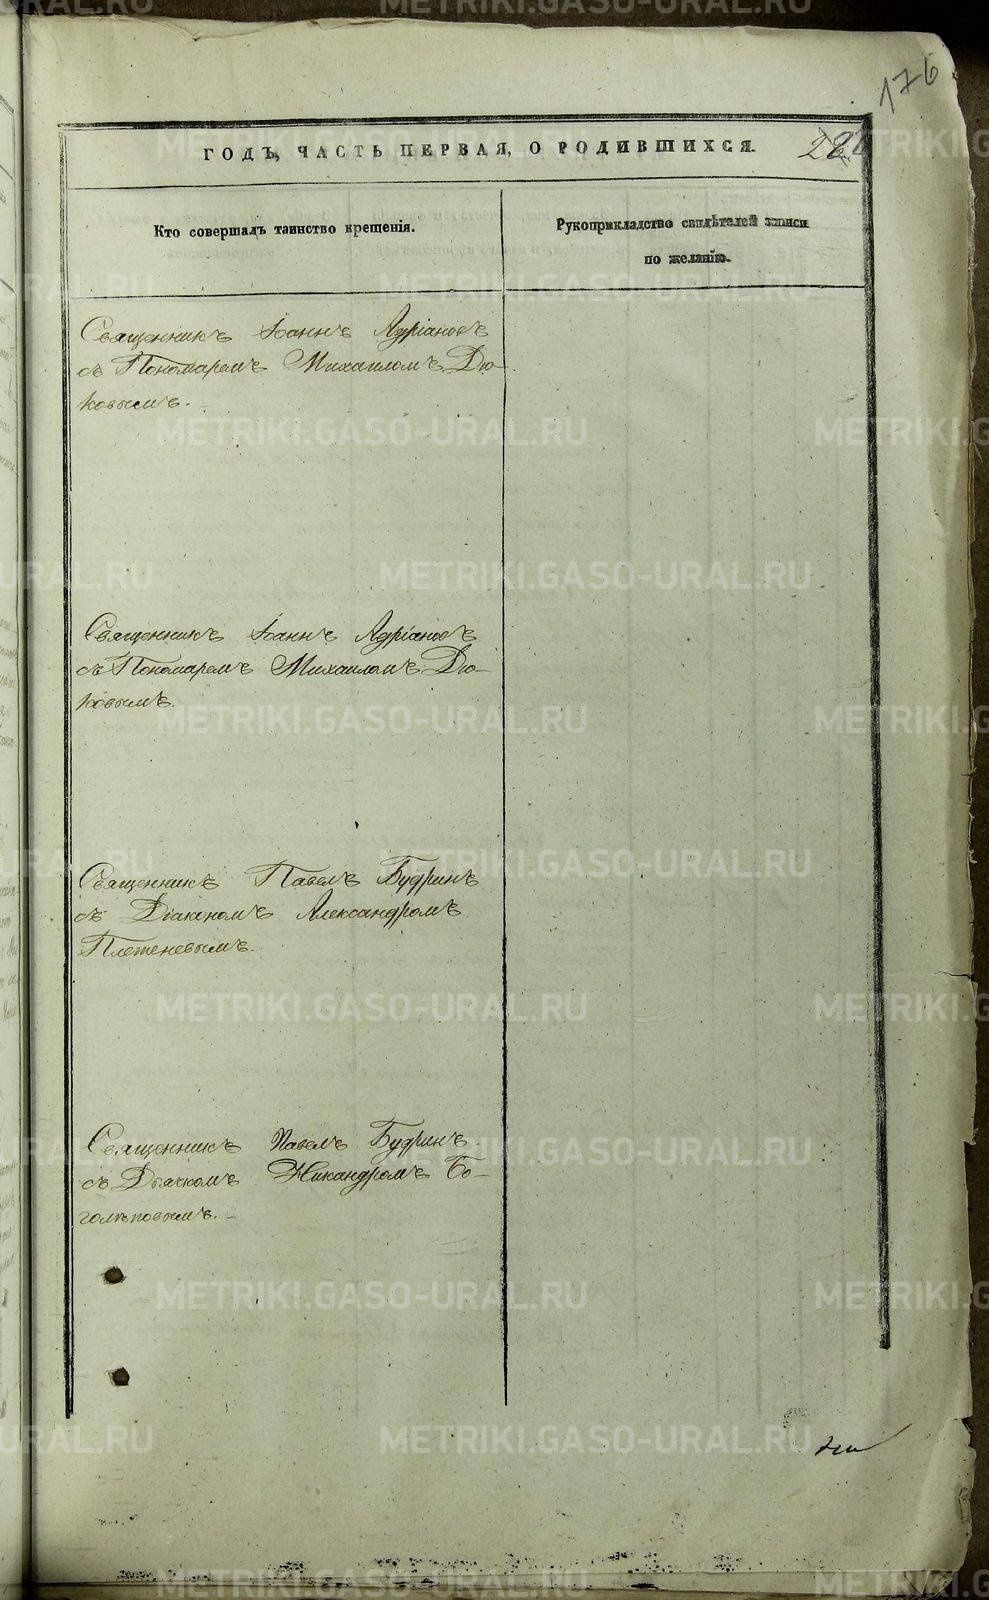 176
ГОДЪ, ЧАСТЬ ПЕРВАЯ, О РОДИВШИХСЯ.
Кто совершалъ таинство крещенія.
Рукоприкладство свидѣтелей записи
по желанію.
Священникъ Іоаннъ Адріановъ
съ Пономаремъ Михаиломъ Дю-
ковымъ.
Священникъ Іоаннъ Адріановъ
съ Пономаремъ Михаиломъ Дю-
ковымъ.
Священникъ Павелъ Будринъ
съ Діакономъ Александромъ
Плетеневымъ.
Священникъ Павелъ Будринъ
съ Дьячкомъ Никандромъ Бо-
голѣповымъ.
METRIKI.GASO-URAL.RU